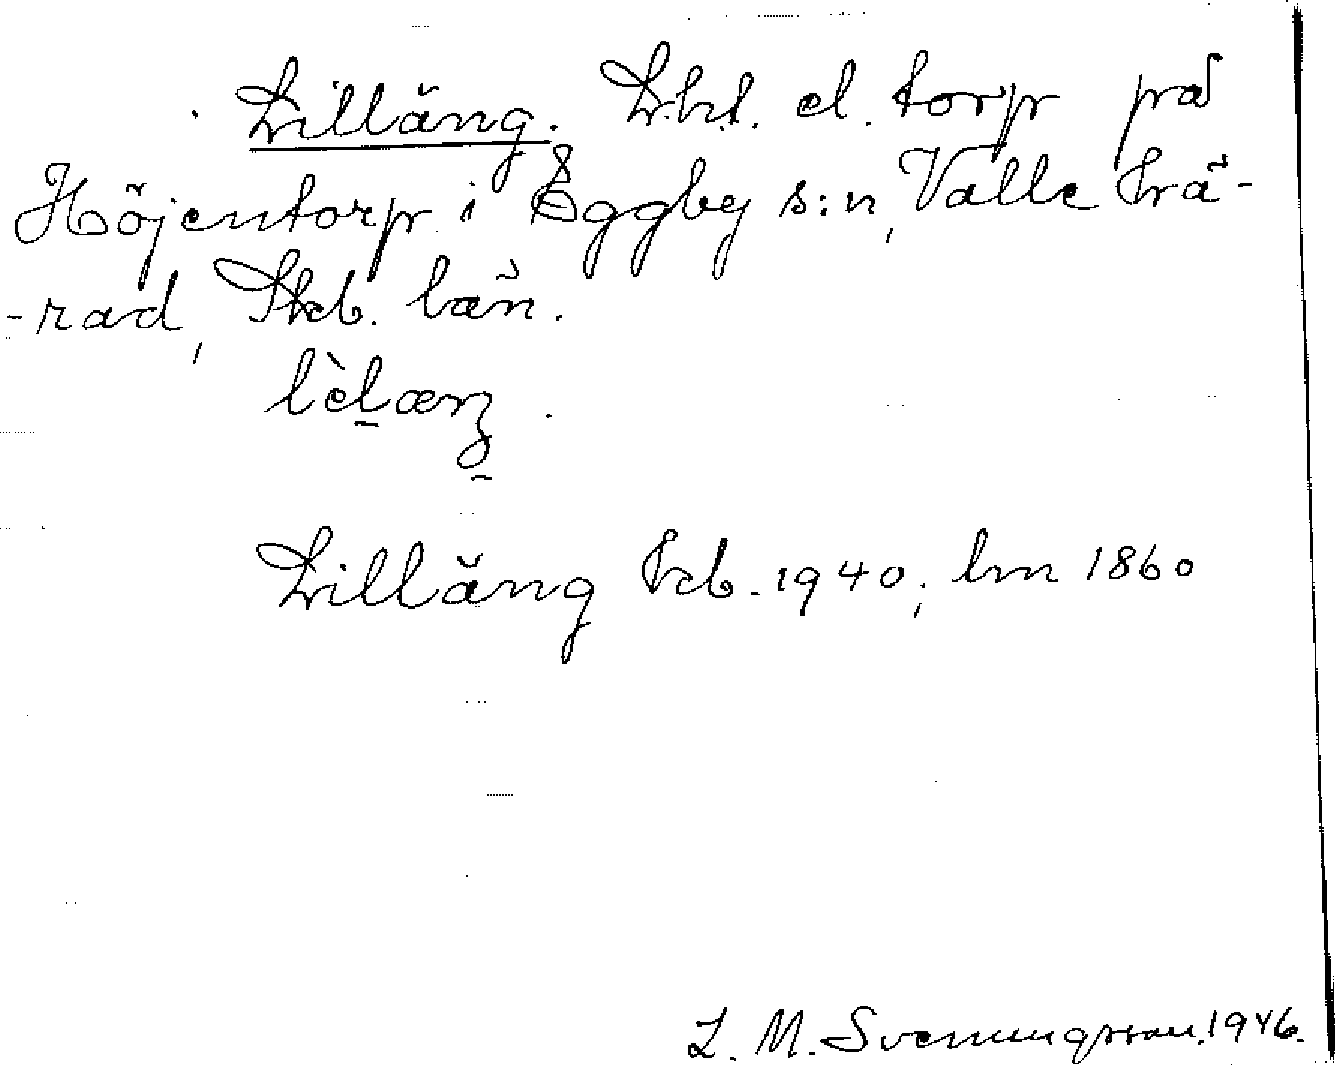 Lilläng. Lht. el. torp på
Höjentorp i Eggby s:n, Valle hä-
-rad, Skb. län.
lèlæŋ.
Lilläng hcb. 1940; lm 1860
L. M. Svenungsson. 1946.